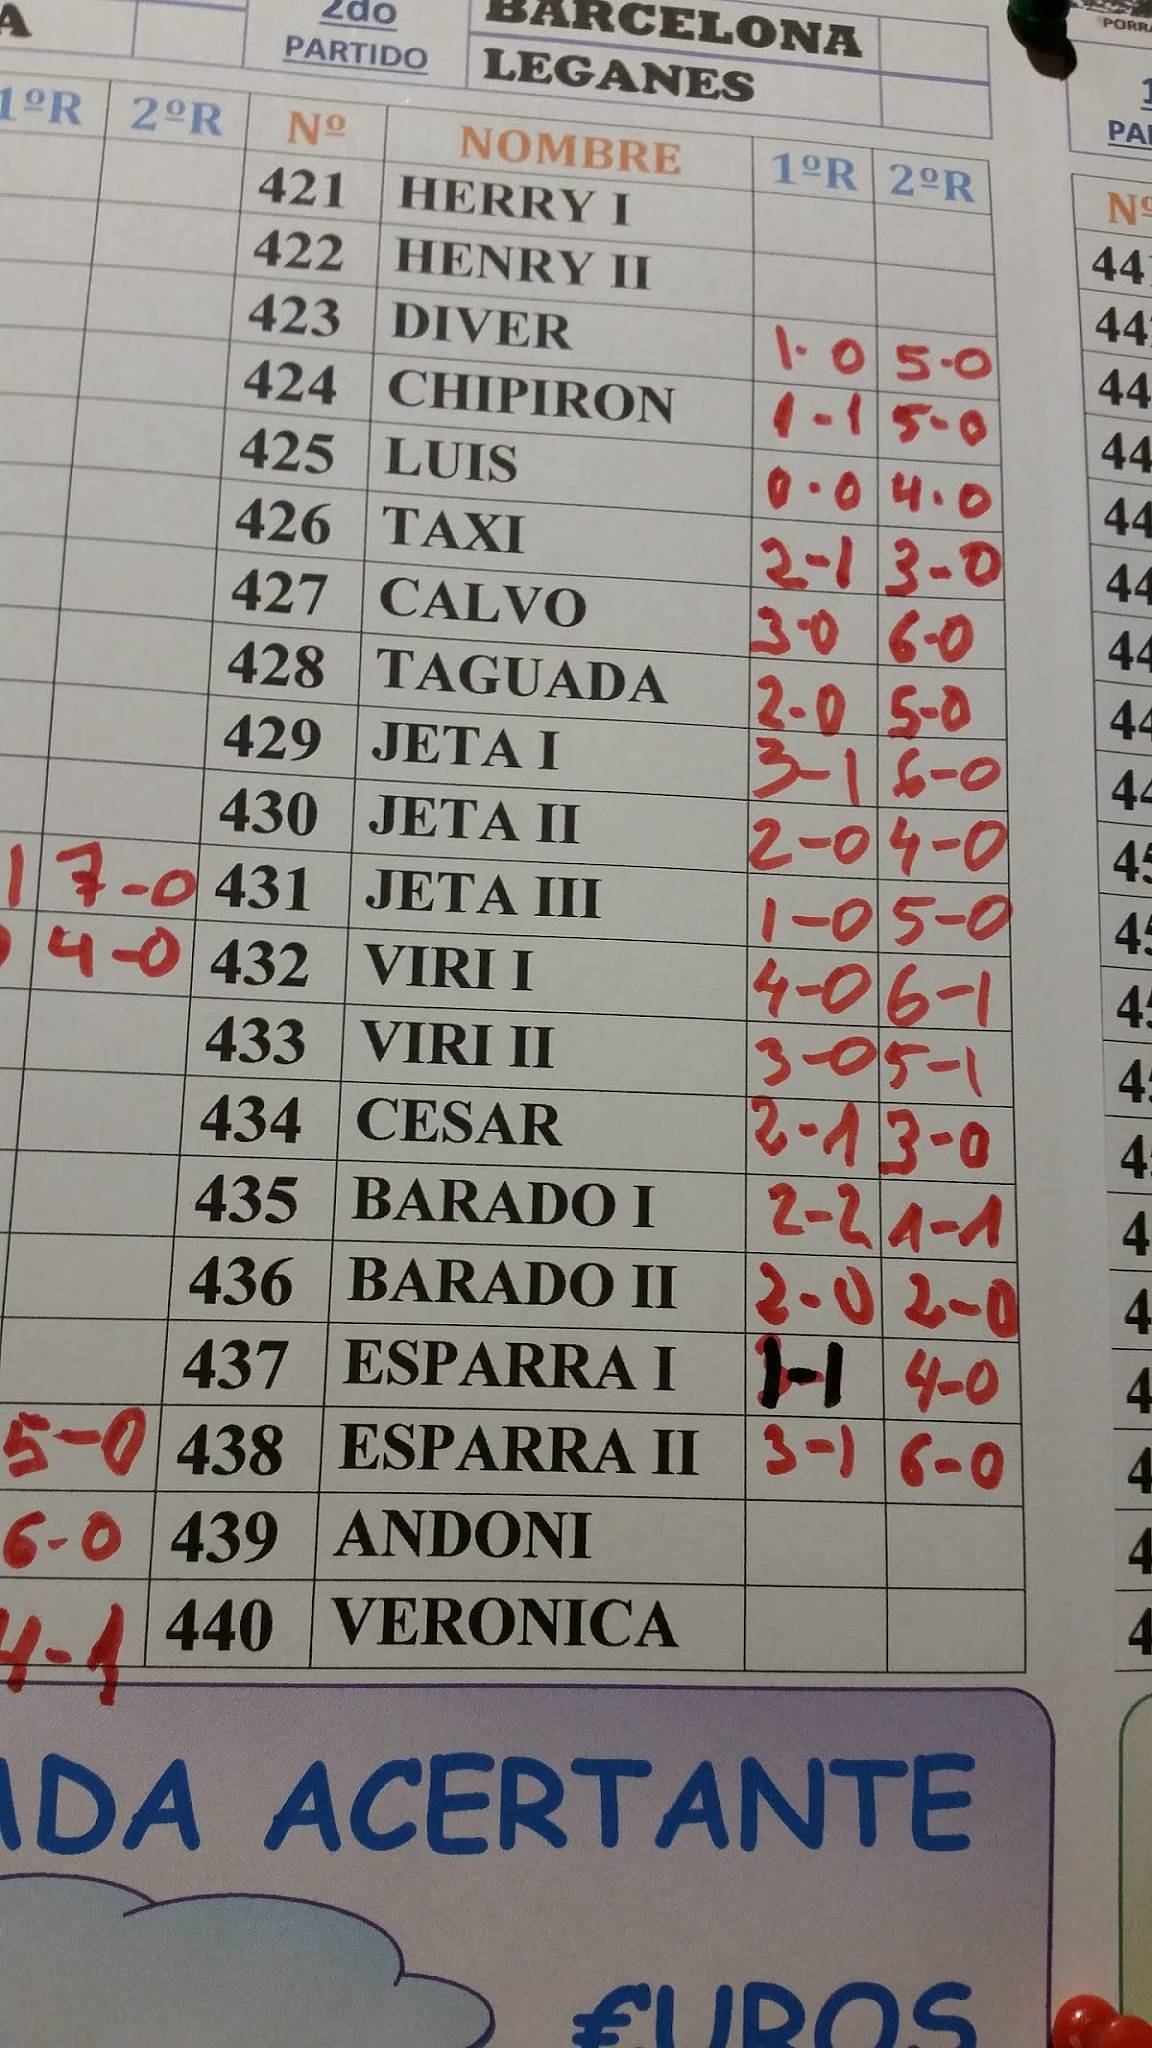 A
2do
PARTIDO
BARCELONA
LEGANES
PORR
1ºR 2ºR Nº NOMBRE 1ºR 2ºR
Nº
421 HERRY I
422 HENRY II
423 DIVER 1-0 5-0
424 CHIPIRON 1-1 5-0
425 LUIS 0-0 4-0
426 TAXI 2-1 3-0
427 CALVO 3-0 6-0
428 TAGUADA 2-0 5-0
429 JETA I 3-1 6-0
430 JETA II 2-0 4-0
7-0 431 JETA III 1-0 5-0
4-0 432 VIRI I 4-0 6-1
433 VIRI II 3-0 5-1
434 CESAR 2-1 3-0
435 BARADO I 2-2 1-1
436 BARADO II 2-0 2-0
437 ESPARRA I 1-1 4-0
5-0 438 ESPARRA II 3-1 6-0
6-0 439 ANDONI
4-1 440 VERONICA
ADA ACERTANTE
€UROS